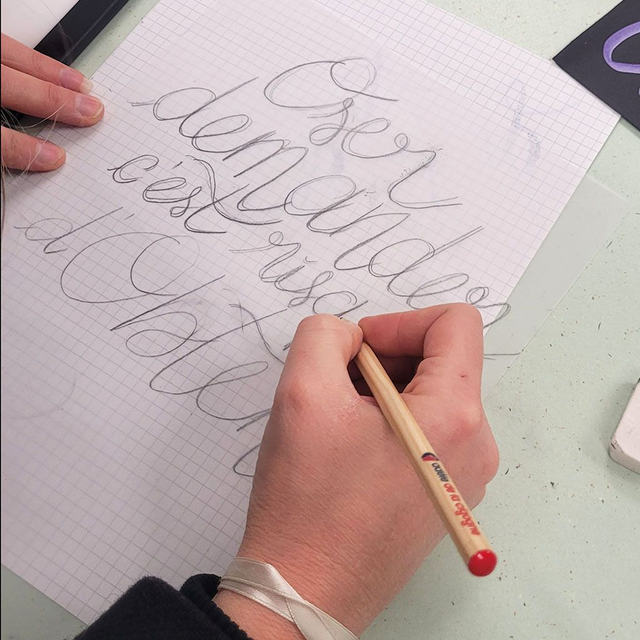 Oser
demander
c'est risq
d'Obten